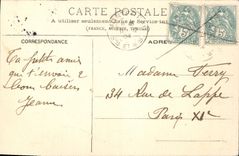 CARTE POSTALE
A utiliser seulement dans le service
(FRANCE, ALGÉRIE, TUNISIE)
CORRESPONDANCE
ADRESSE
Ta petite amie
qui t'envoie 2
bons baisers
Jeanne
Madame Ferry
34 Rue de Lappe
Paris XIe